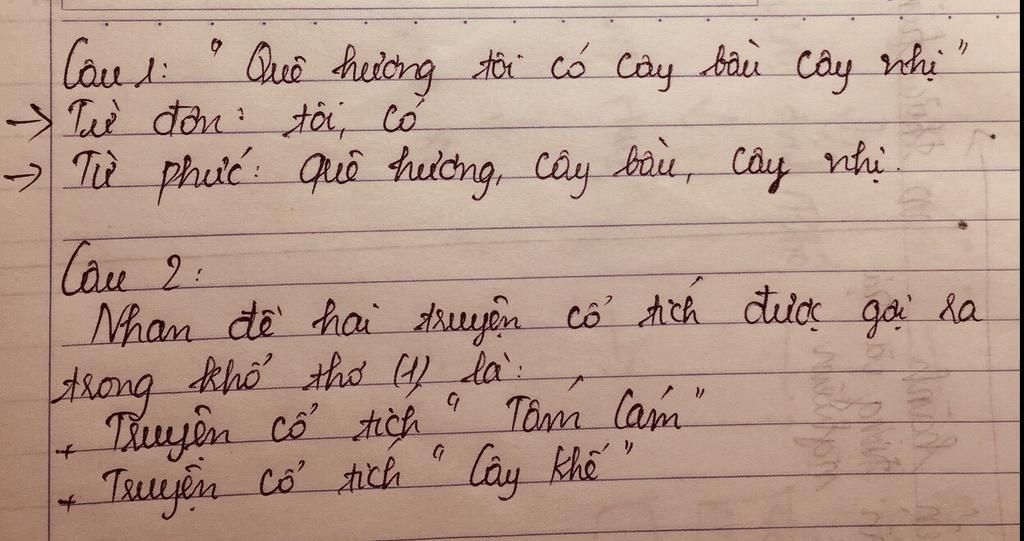 Câu 1: " Quê hương tôi có cây bầu cây nhị "
→ Từ đơn: tôi, có
→ Từ phức: quê hương, cây bầu, cây nhị.
Câu 2:
Nhan đề hai truyện cổ tích được gợi ra
trong khổ thơ (1) là:
+ Truyện cổ tích " Tấm Cám "
+ Truyện cổ tích " Cây khế "